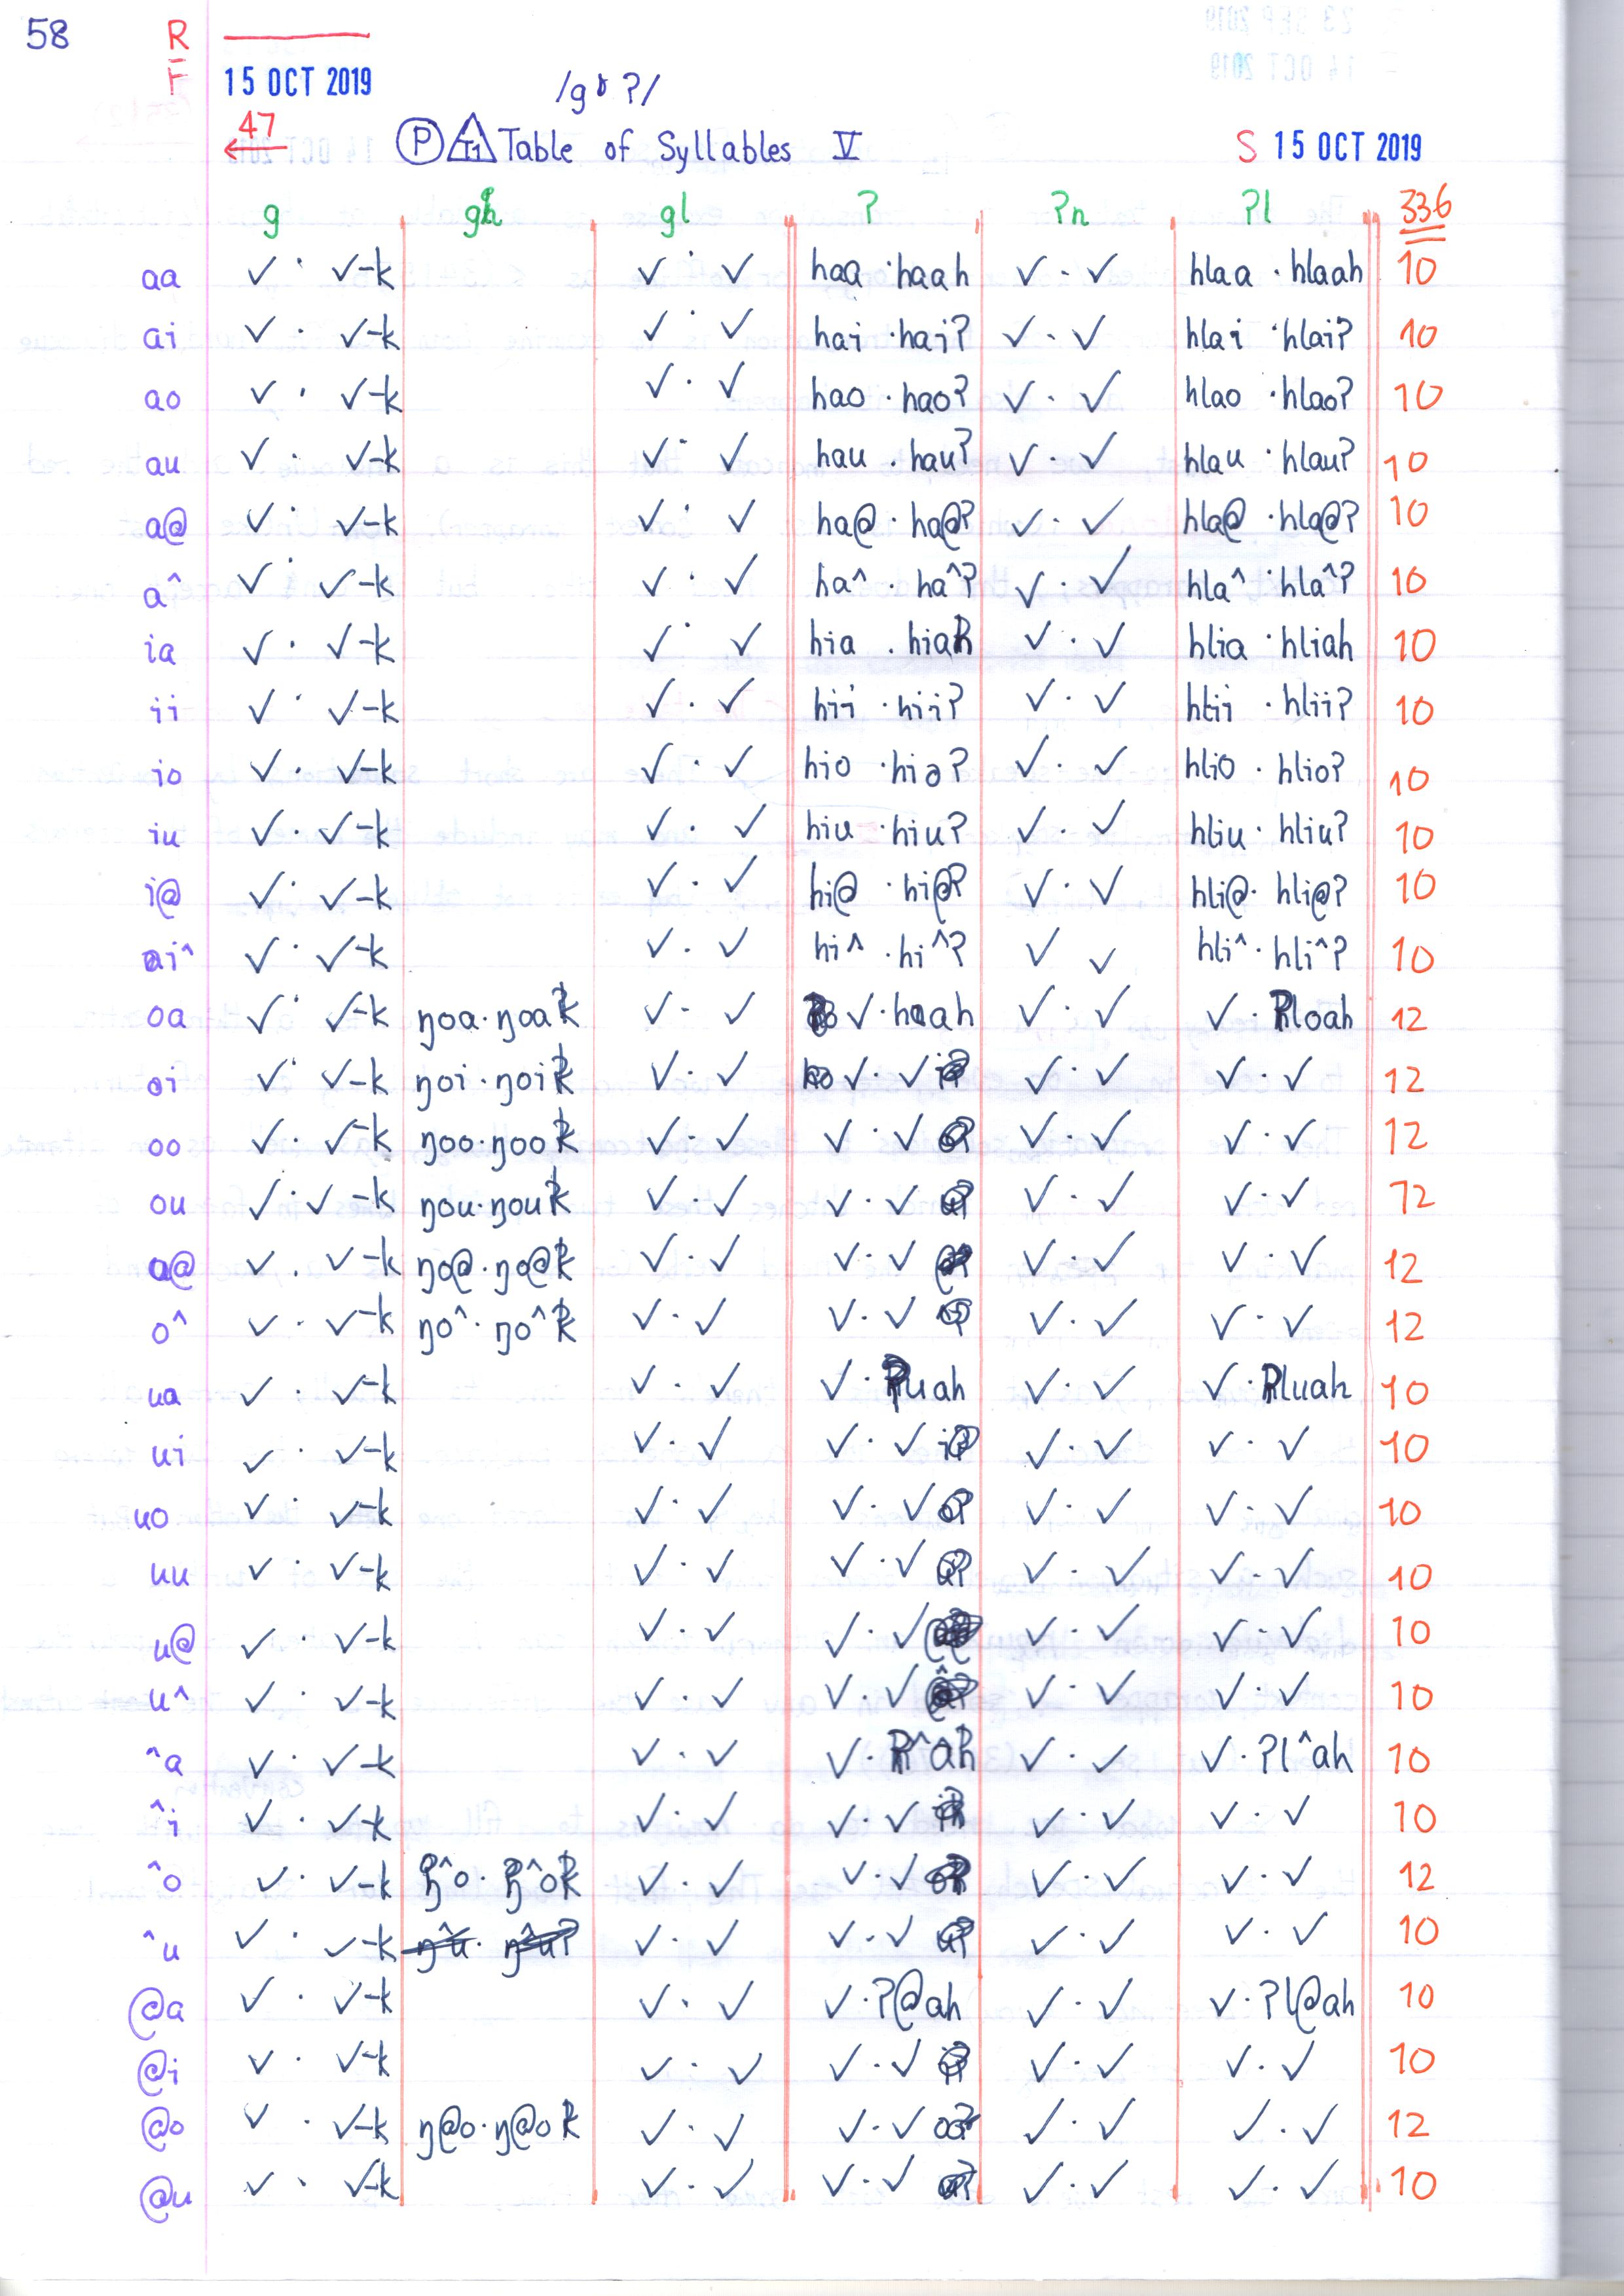 58 R
F 15 OCT 2019 /g ? /
47 P T1 Table of Syllables V S 15 OCT 2019
g gh gl ? ?n ?l 336
aa ✓ · ✓-k ✓ · ✓ haa · haah ✓ · ✓ hlaa · hlaah 10
ai ✓ · ✓-k ✓ · ✓ hai · hai? ✓ · ✓ hlai · hlai? 10
ao ✓ · ✓-k ✓ · ✓ hao · hao? ✓ · ✓ hlao · hlao? 10
au ✓ · ✓-k ✓ · ✓ hau · hau? ✓ · ✓ hlau · hlau? 10
a@ ✓ · ✓-k ✓ · ✓ ha@ · ha@? ✓ · ✓ hla@ · hla@? 10
a^ ✓ · ✓-k ✓ · ✓ ha^ · ha^? ✓ · ✓ hla^ · hla^? 10
ia ✓ · ✓-k ✓ · ✓ hia · hiah ✓ · ✓ hlia · hliah 10
ii ✓ · ✓-k ✓ · ✓ hii · hii? ✓ · ✓ hlii · hlii? 10
io ✓ · ✓-k ✓ · ✓ hio · hio? ✓ · ✓ hlio · hlio? 10
iu ✓ · ✓-k ✓ · ✓ hiu · hiu? ✓ · ✓ hliu · hliu? 10
i@ ✓ · ✓-k ✓ · ✓ hi@ · hi@? ✓ · ✓ hli@ · hli@? 10
i^ ✓ · ✓-k ✓ · ✓ hi^ · hi^? ✓ ✓ hli^ · hli^? 10
oa ✓ · ✓-k ŋoa · ŋoak ✓ · ✓ ✓ · hoah ✓ · ✓ ✓ · ?loah 12
oi ✓ · ✓-k ŋoi · ŋoik ✓ · ✓ ✓ · ✓ ✓ · ✓ ✓ · ✓ 12
oo ✓ · ✓-k ŋoo · ŋook ✓ · ✓ ✓ · ✓ ✓ · ✓ ✓ · ✓ 12
ou ✓ · ✓-k ŋou · ŋouk ✓ · ✓ ✓ · ✓ ✓ · ✓ ✓ · ✓ 12
o@ ✓ · ✓-k ŋo@ · ŋo@k ✓ · ✓ ✓ · ✓ ✓ · ✓ ✓ · ✓ 12
o^ ✓ · ✓-k ŋo^ · ŋo^k ✓ · ✓ ✓ · ✓ ✓ · ✓ ✓ · ✓ 12
ua ✓ · ✓-k ✓ · ✓ ✓ · ?uah ✓ · ✓ ✓ · ?luah 10
ui ✓ · ✓-k ✓ · ✓ ✓ · ✓ ✓ · ✓ ✓ · ✓ 10
uo ✓ · ✓-k ✓ · ✓ ✓ · ✓ ✓ · ✓ ✓ · ✓ 10
uu ✓ · ✓-k ✓ · ✓ ✓ · ✓ ✓ · ✓ ✓ · ✓ 10
u@ ✓ · ✓-k ✓ · ✓ ✓ · ✓ ✓ · ✓ ✓ · ✓ 10
u^ ✓ · ✓-k ✓ · ✓ ✓ · ✓ ✓ · ✓ ✓ · ✓ 10
^a ✓ · ✓-k ✓ · ✓ ✓ · ?^ah ✓ · ✓ ✓ · ?l^ah 10
^i ✓ · ✓-k ✓ · ✓ ✓ · ✓ ✓ · ✓ ✓ · ✓ 10
^o ✓ · ✓-k ŋ^o · ŋ^ok ✓ · ✓ ✓ · ✓ ✓ · ✓ ✓ · ✓ 12
^u ✓ · ✓-k ŋ^u · ŋ^u? ✓ · ✓ ✓ · ✓ ✓ · ✓ ✓ · ✓ 10
@a ✓ · ✓-k ✓ · ✓ ✓ · ?@ah ✓ · ✓ ✓ · ?l@ah 10
@i ✓ · ✓-k ✓ · ✓ ✓ · ✓ ✓ · ✓ ✓ · ✓ 10
@o ✓ · ✓-k ŋ@o · ŋ@ok ✓ · ✓ ✓ · ✓ ✓ · ✓ ✓ · ✓ 12
@u ✓ · ✓-k ✓ · ✓ ✓ · ✓ ✓ · ✓ ✓ · ✓ 10